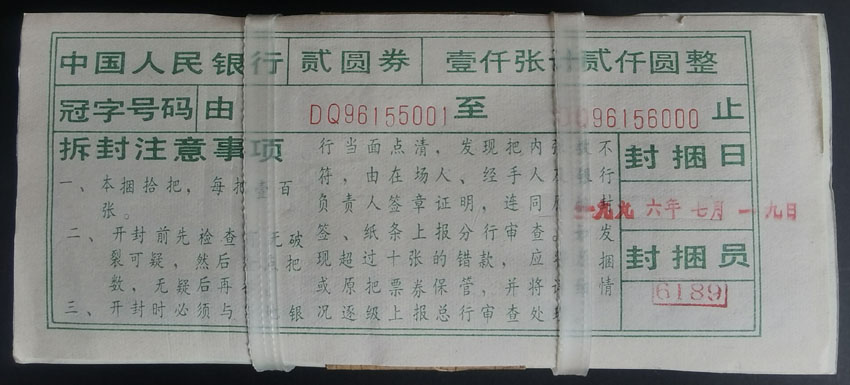 中国人民银行 贰圆券 壹仟张计贰仟圆整
冠字号码 由 DQ96155001 至 Q96156000 止
拆封注意事项
一、本捆拾把，每把壹百
张。
二、开封前先检查 无破
裂可疑，然后 点把
数，无疑后再
三、开封时必须与 银
行当面点清，发现把内张数不
符，由在场人、经手人 银行
负责人签章证明，连同 封
签、纸条上报分行审查。 发
现超过十张的错款，应 捆
或原把票券保管，并将 情
况逐级上报总行审查处
封捆日
一九九六年七月一九日
封捆员
6189